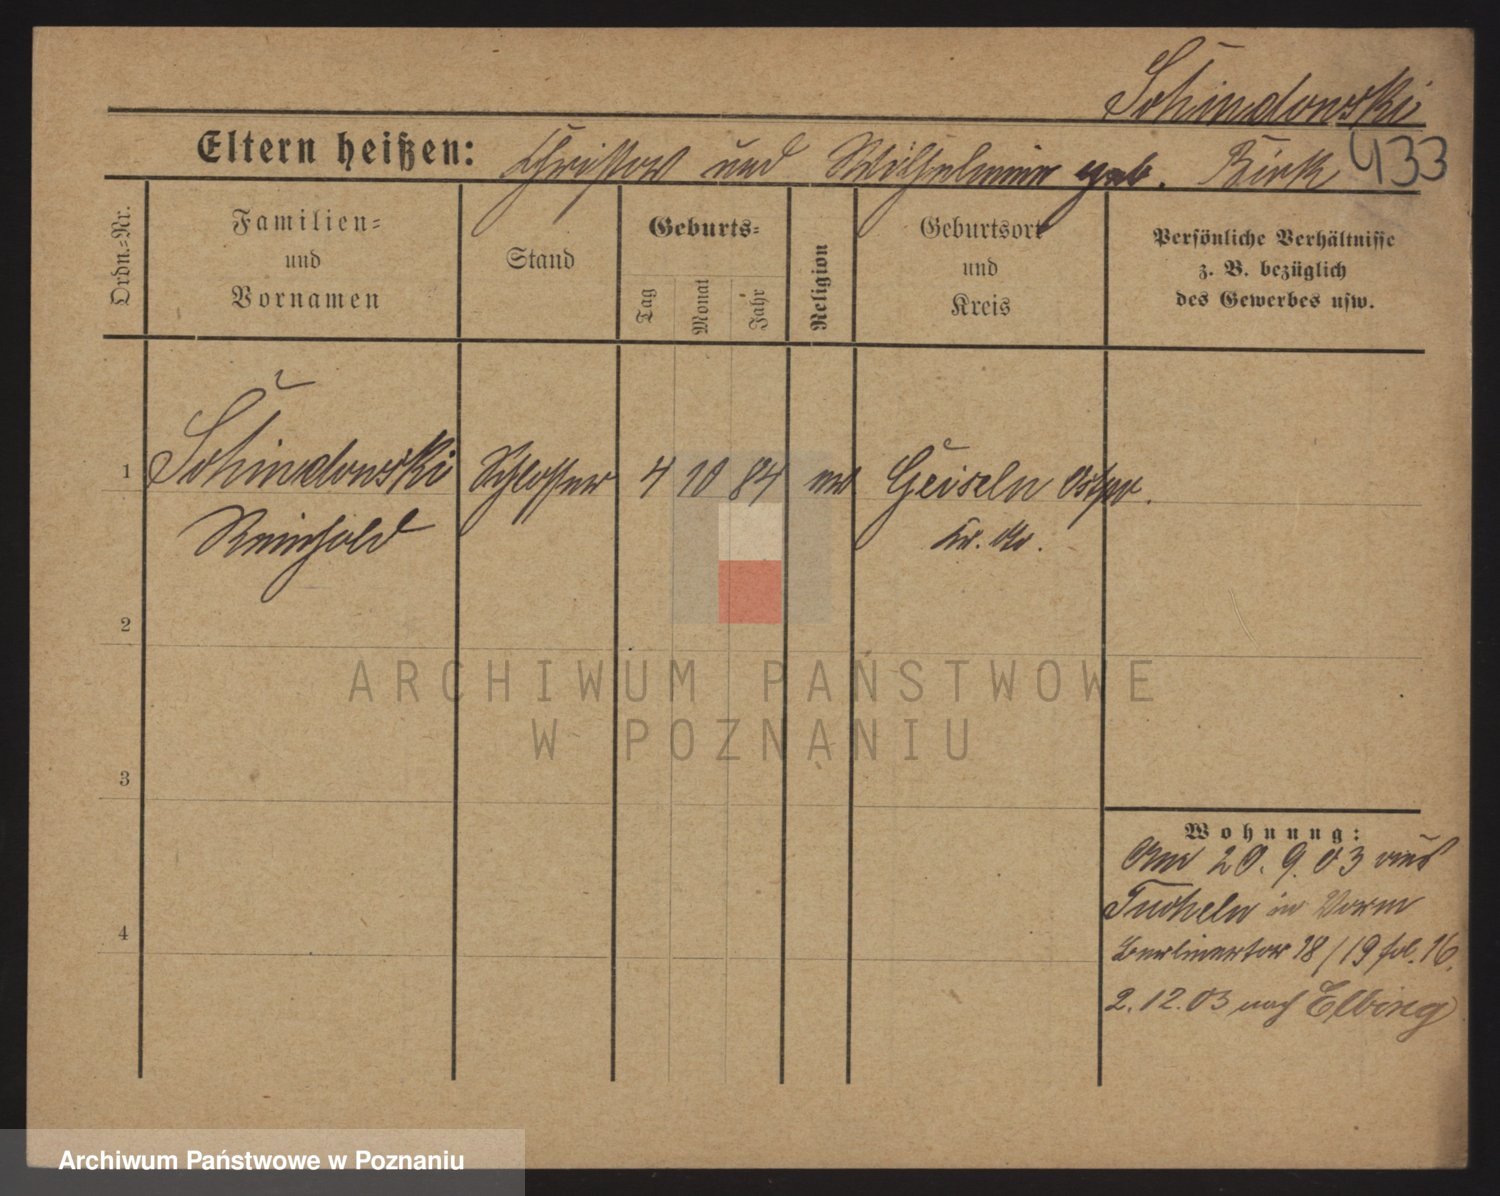 Schindowski
Eltern heißen: Christof und Wilhelmine geb. Bink 433
Ordn.=Nr.
Familien=
und
Vornamen
Stand
Geburts=
Tag
Monat
Jahr
Religion
Geburtsort
und
Kreis
Persönliche Verhältnisse
z. B. bezüglich
des Gewerbes usw.
1 Schindowski Schlosser 4 10 84 ev Geiseln Ostpr.
Reinhold Kr.
2
3
4
Wohnung:
Am 20. 9. 03 aus
Tucheln in Worm
Berlinertor 18/19 fol. 16.
2. 12. 03 nach Elbing
ARCHIWUM PAŃSTWOWE
W POZNANIU
Archiwum Państwowe w Poznaniu